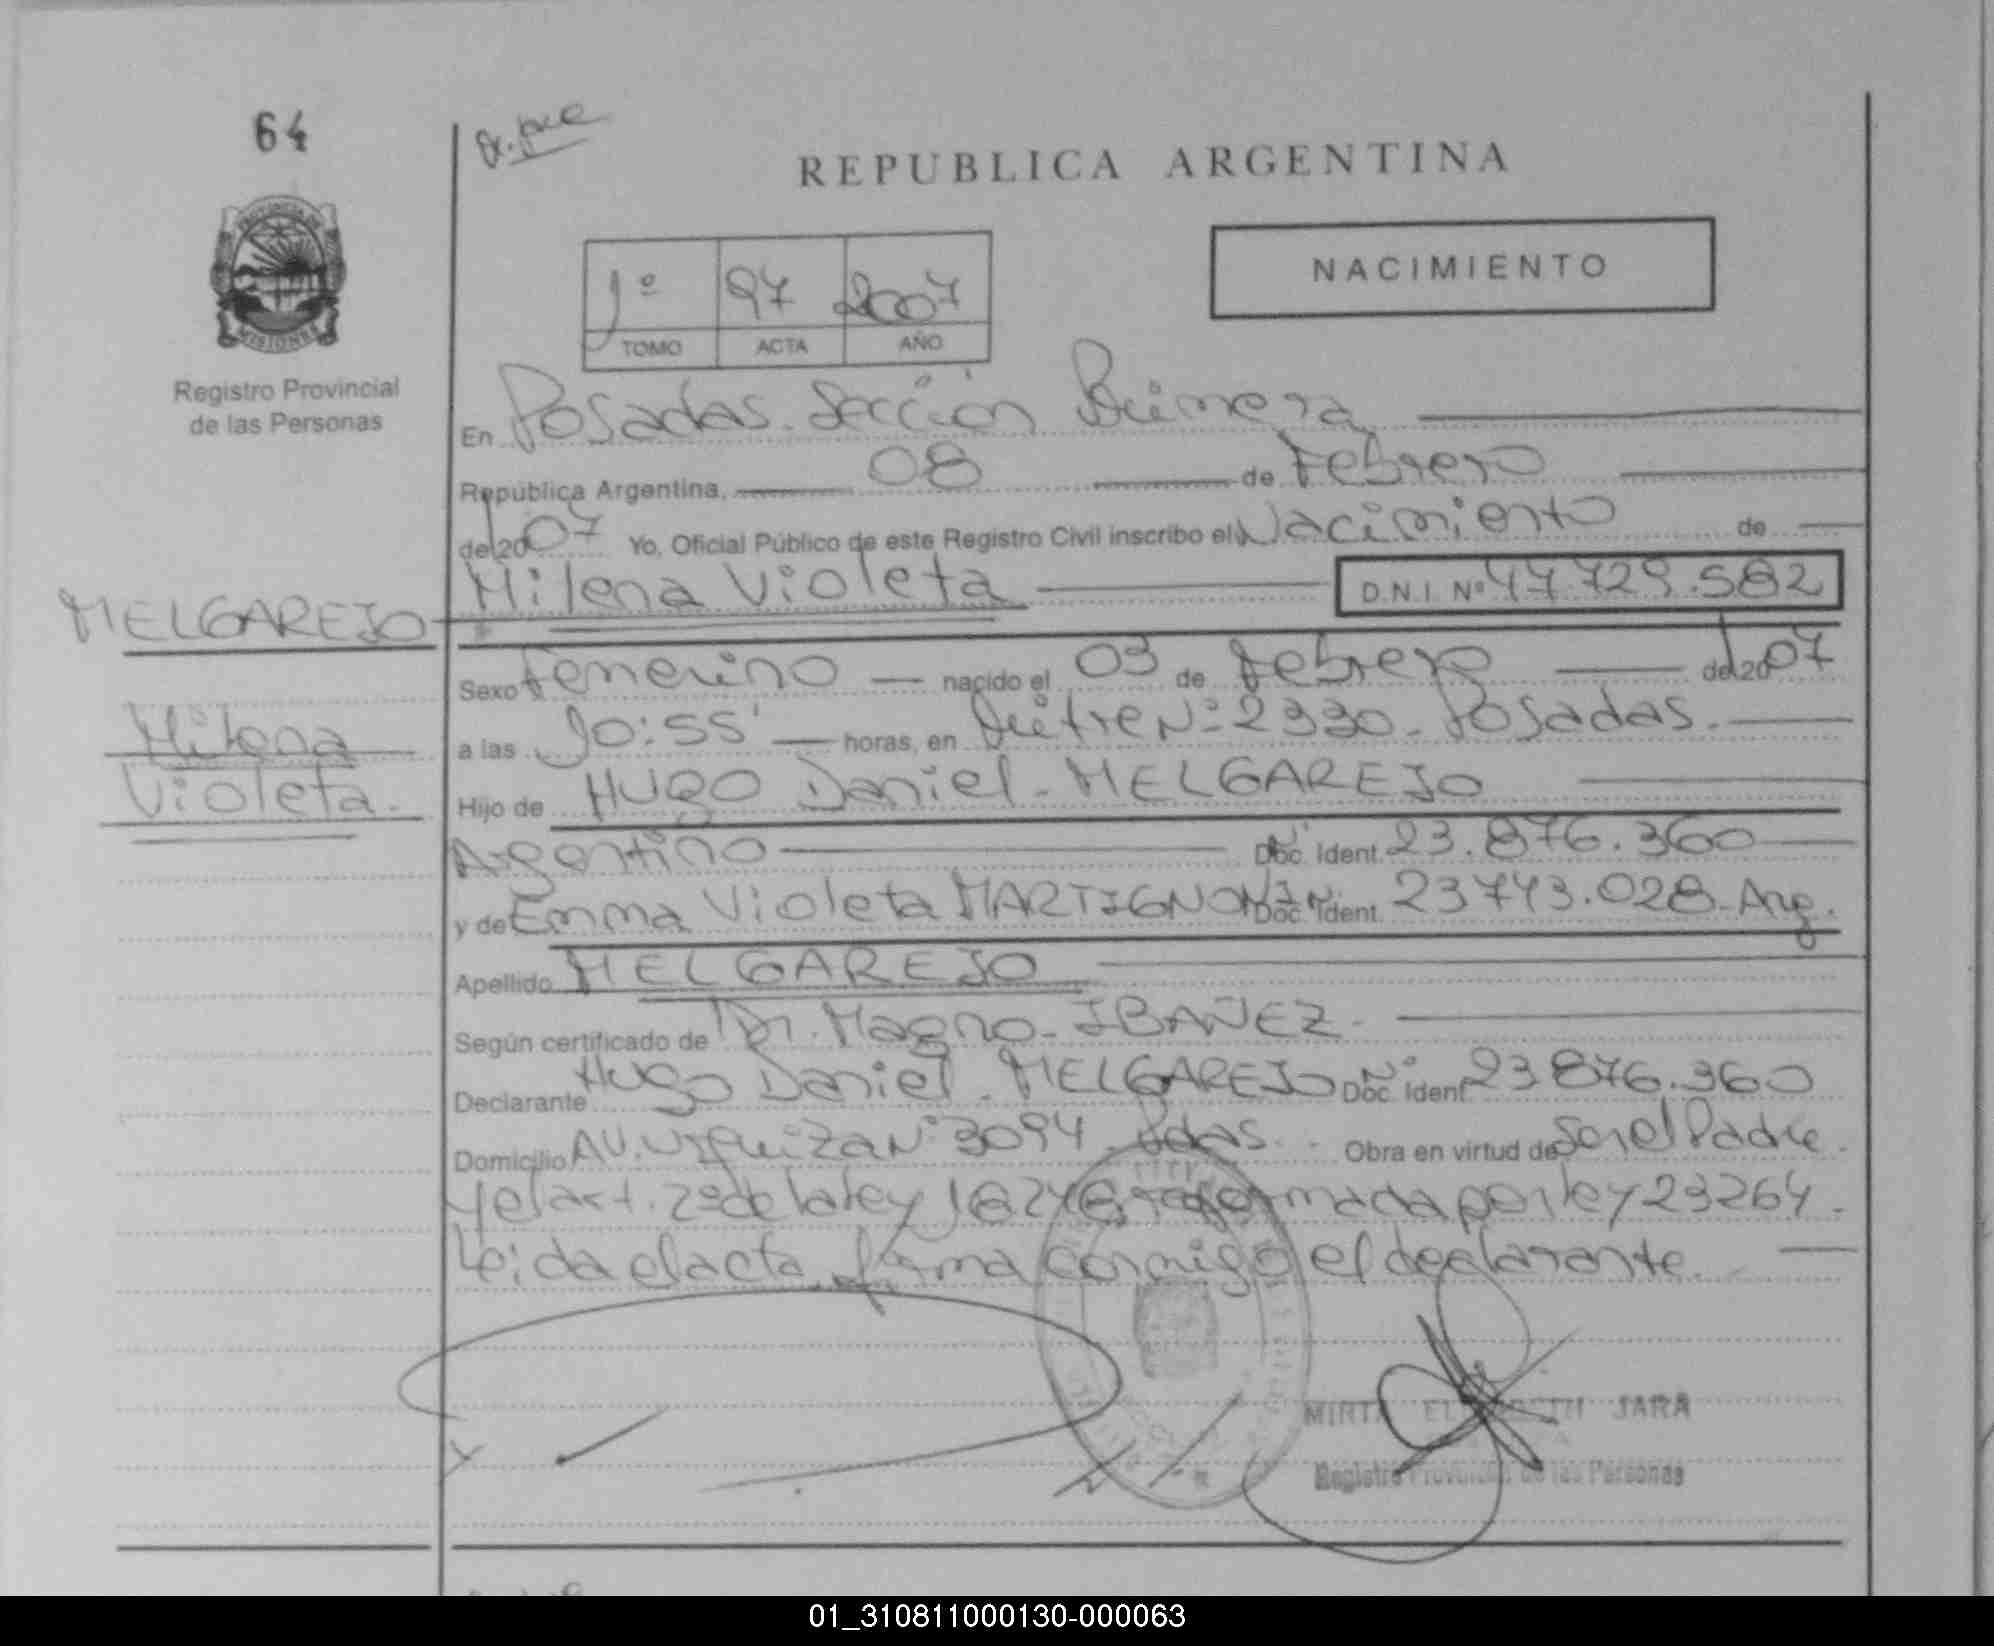 64
REPUBLICA ARGENTINA
PROVINCIA DE
MISIONES
Registro Provincial
de las Personas
1º 97 2007
TOMO ACTA AÑO
NACIMIENTO
En Posadas. Sección Primera
República Argentina, 08 de Febrero
del 2007 Yo, Oficial Público de este Registro Civil inscribo el Nacimiento de
MELGAREJO Milena Violeta D.N.I. Nº 47.729.582
Sexo Femenino nacido el 03 de Febrero del 2007
Milena
Violeta.
a las 10:55' horas, en Mitre Nº 2330. Posadas.
Hijo de HUGO Daniel. MELGAREJO
Argentino Doc. Ident. 23.876.360
y de Emma Violeta MARTIGNONI Doc. Ident. 23743.028 Arg.
Apellido MELGAREJO
Según certificado de Dr. Magno. IBAÑEZ.
Declarante Hugo Daniel. MELGAREJO Doc. Ident. 23876.360
Domicilio AV. Urquiza Nº 3094. Pdas. Obra en virtud de Ser el Padre
y el art. 2º de la ley 18248 reformada por ley 23264.
Leida el acta firma conmigo el declarante.
MIRTA JARA
Registro Provincial de las Personas
01_310811000130-000063